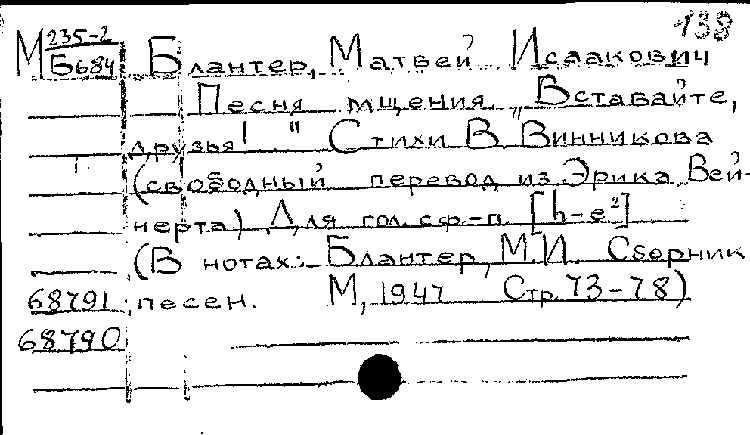 138
М 235-2
Б684 Блантер, Матвей Исаакович
Песня мщения „Вставайте,
друзья!" Стихи В Винникова
(свободный перевод из Эрика Вей-
нерта) Для гол. с ф-п. [h-e²]
(В нотах: Блантер, М.И. Сборник
68791 песен. М, 1947 Стр. 73-78)
68790